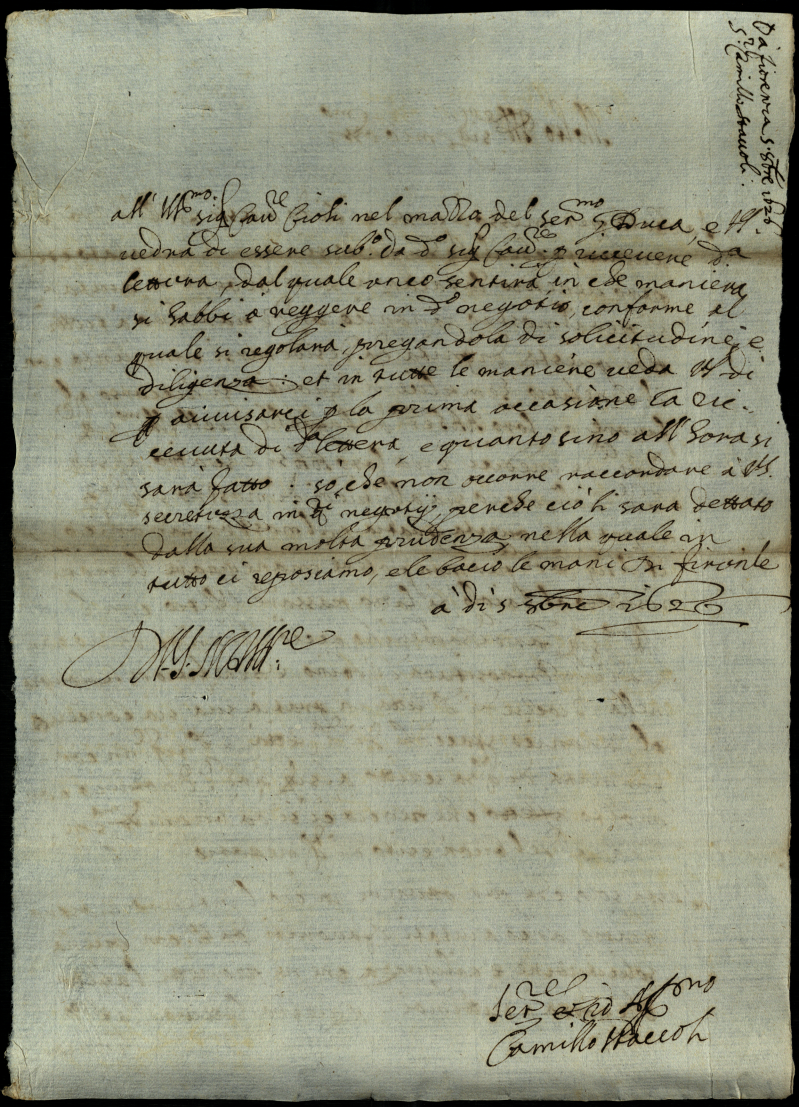 Da Fiorenza 5 9bre 1626
S.r Camillo Staccoli.
all' Ill.mo sig.r Cav.re Cioli nel mazzo del Ser.mo G. Duca, e VS.
vedrà di essere sub.o da d.o sig.r Cav.re p ricevere da
lettera, dal quale anco sentirà in che maniera
si habbi à reggere in d.o negotio, conforme al
quale si regolarà, pregandola di solicitudine, e
diligenza: et in tutte le maniere veda VS. di
avvisarci p la prima occasione la ric=
cevuta di d.a lettera, e quanto sino all' hora si
sarà fatto: sò che non occorre raccordare à VS.
secretezza in q.ti negotij, perche ciò li sara dettato
dalla sua molta prudenza, nella quale in
tutto ci reposiamo, e le bacio le mani Di Firenze
à di 5 9bre 1626
D. V. S. Molt' Ill.re
Ser.re e zio Aff.mo
Camillo Staccoli